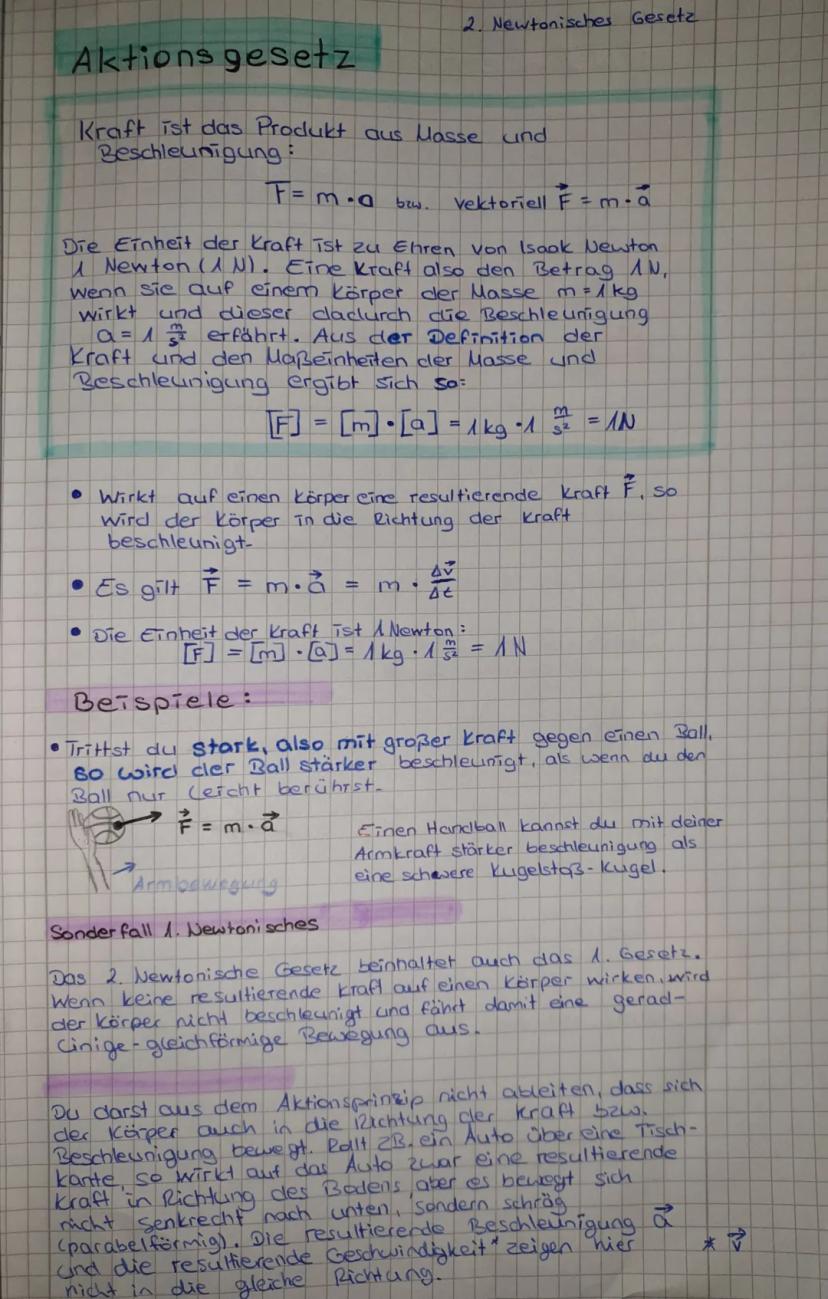 2. Newtonisches Gesetz
Aktionsgesetz
Kraft ist das Produkt aus Masse und
Beschleunigung:
F = m · a bzw. vektoriell F⃗ = m · a⃗
Die Einheit der Kraft ist zu Ehren von Isaak Newton
1 Newton (1 N). Eine Kraft also den Betrag 1N,
wenn sie auf einem Körper der Masse m = 1 kg
wirkt und dieser dadurch die Beschleunigung
a = 1 m/s² erfährt. Aus der Definition der
Kraft und den Maßeinheiten der Masse und
Beschleunigung ergibt sich so:
[F] = [m] · [a] = 1 kg · 1 m/s² = 1N
• Wirkt auf einen Körper eine resultierende Kraft F⃗, so
wird der Körper in die Richtung der Kraft
beschleunigt.
• Es gilt F⃗ = m · a⃗ = m · Δv⃗/Δt
• Die Einheit der Kraft ist 1 Newton:
[F] = [m] · [a] = 1 kg · 1 m/s² = 1N
Beispiele:
• Trittst du stark, also mit großer Kraft gegen einen Ball,
so wird der Ball stärker beschleunigt, als wenn du den
Ball nur leicht berührst.
F⃗ = m · a⃗
Einen Handball kannst du mit deiner
Armkraft stärker beschleunigung als
eine schwere Kugelstoß-Kugel.
Armbewegung
Sonderfall 1. Newtonisches
Das 2. Newtonische Gesetz beinhaltet auch das 1. Gesetz.
Wenn keine resultierende Kraft auf einen Körper wirken, wird
der Körper nicht beschleunigt und fährt damit eine gerad-
linige-gleichförmige Bewegung aus.
Du darst aus dem Aktionsprinzip nicht ableiten, dass sich
der Körper auch in die Richtung der Kraft bzw.
Beschleunigung bewegt. Rollt zB. ein Auto über eine Tisch-
kante, so wirkt auf das Auto zwar eine resultierende
Kraft in Richtung des Bodens, aber es bewegt sich
nicht senkrecht nach unten, sondern schräg
(parabelförmig). Die resultierende Beschleunigung a⃗
und die resultierende Geschwindigkeit* zeigen hier
* v⃗
nicht in die gleiche Richtung.